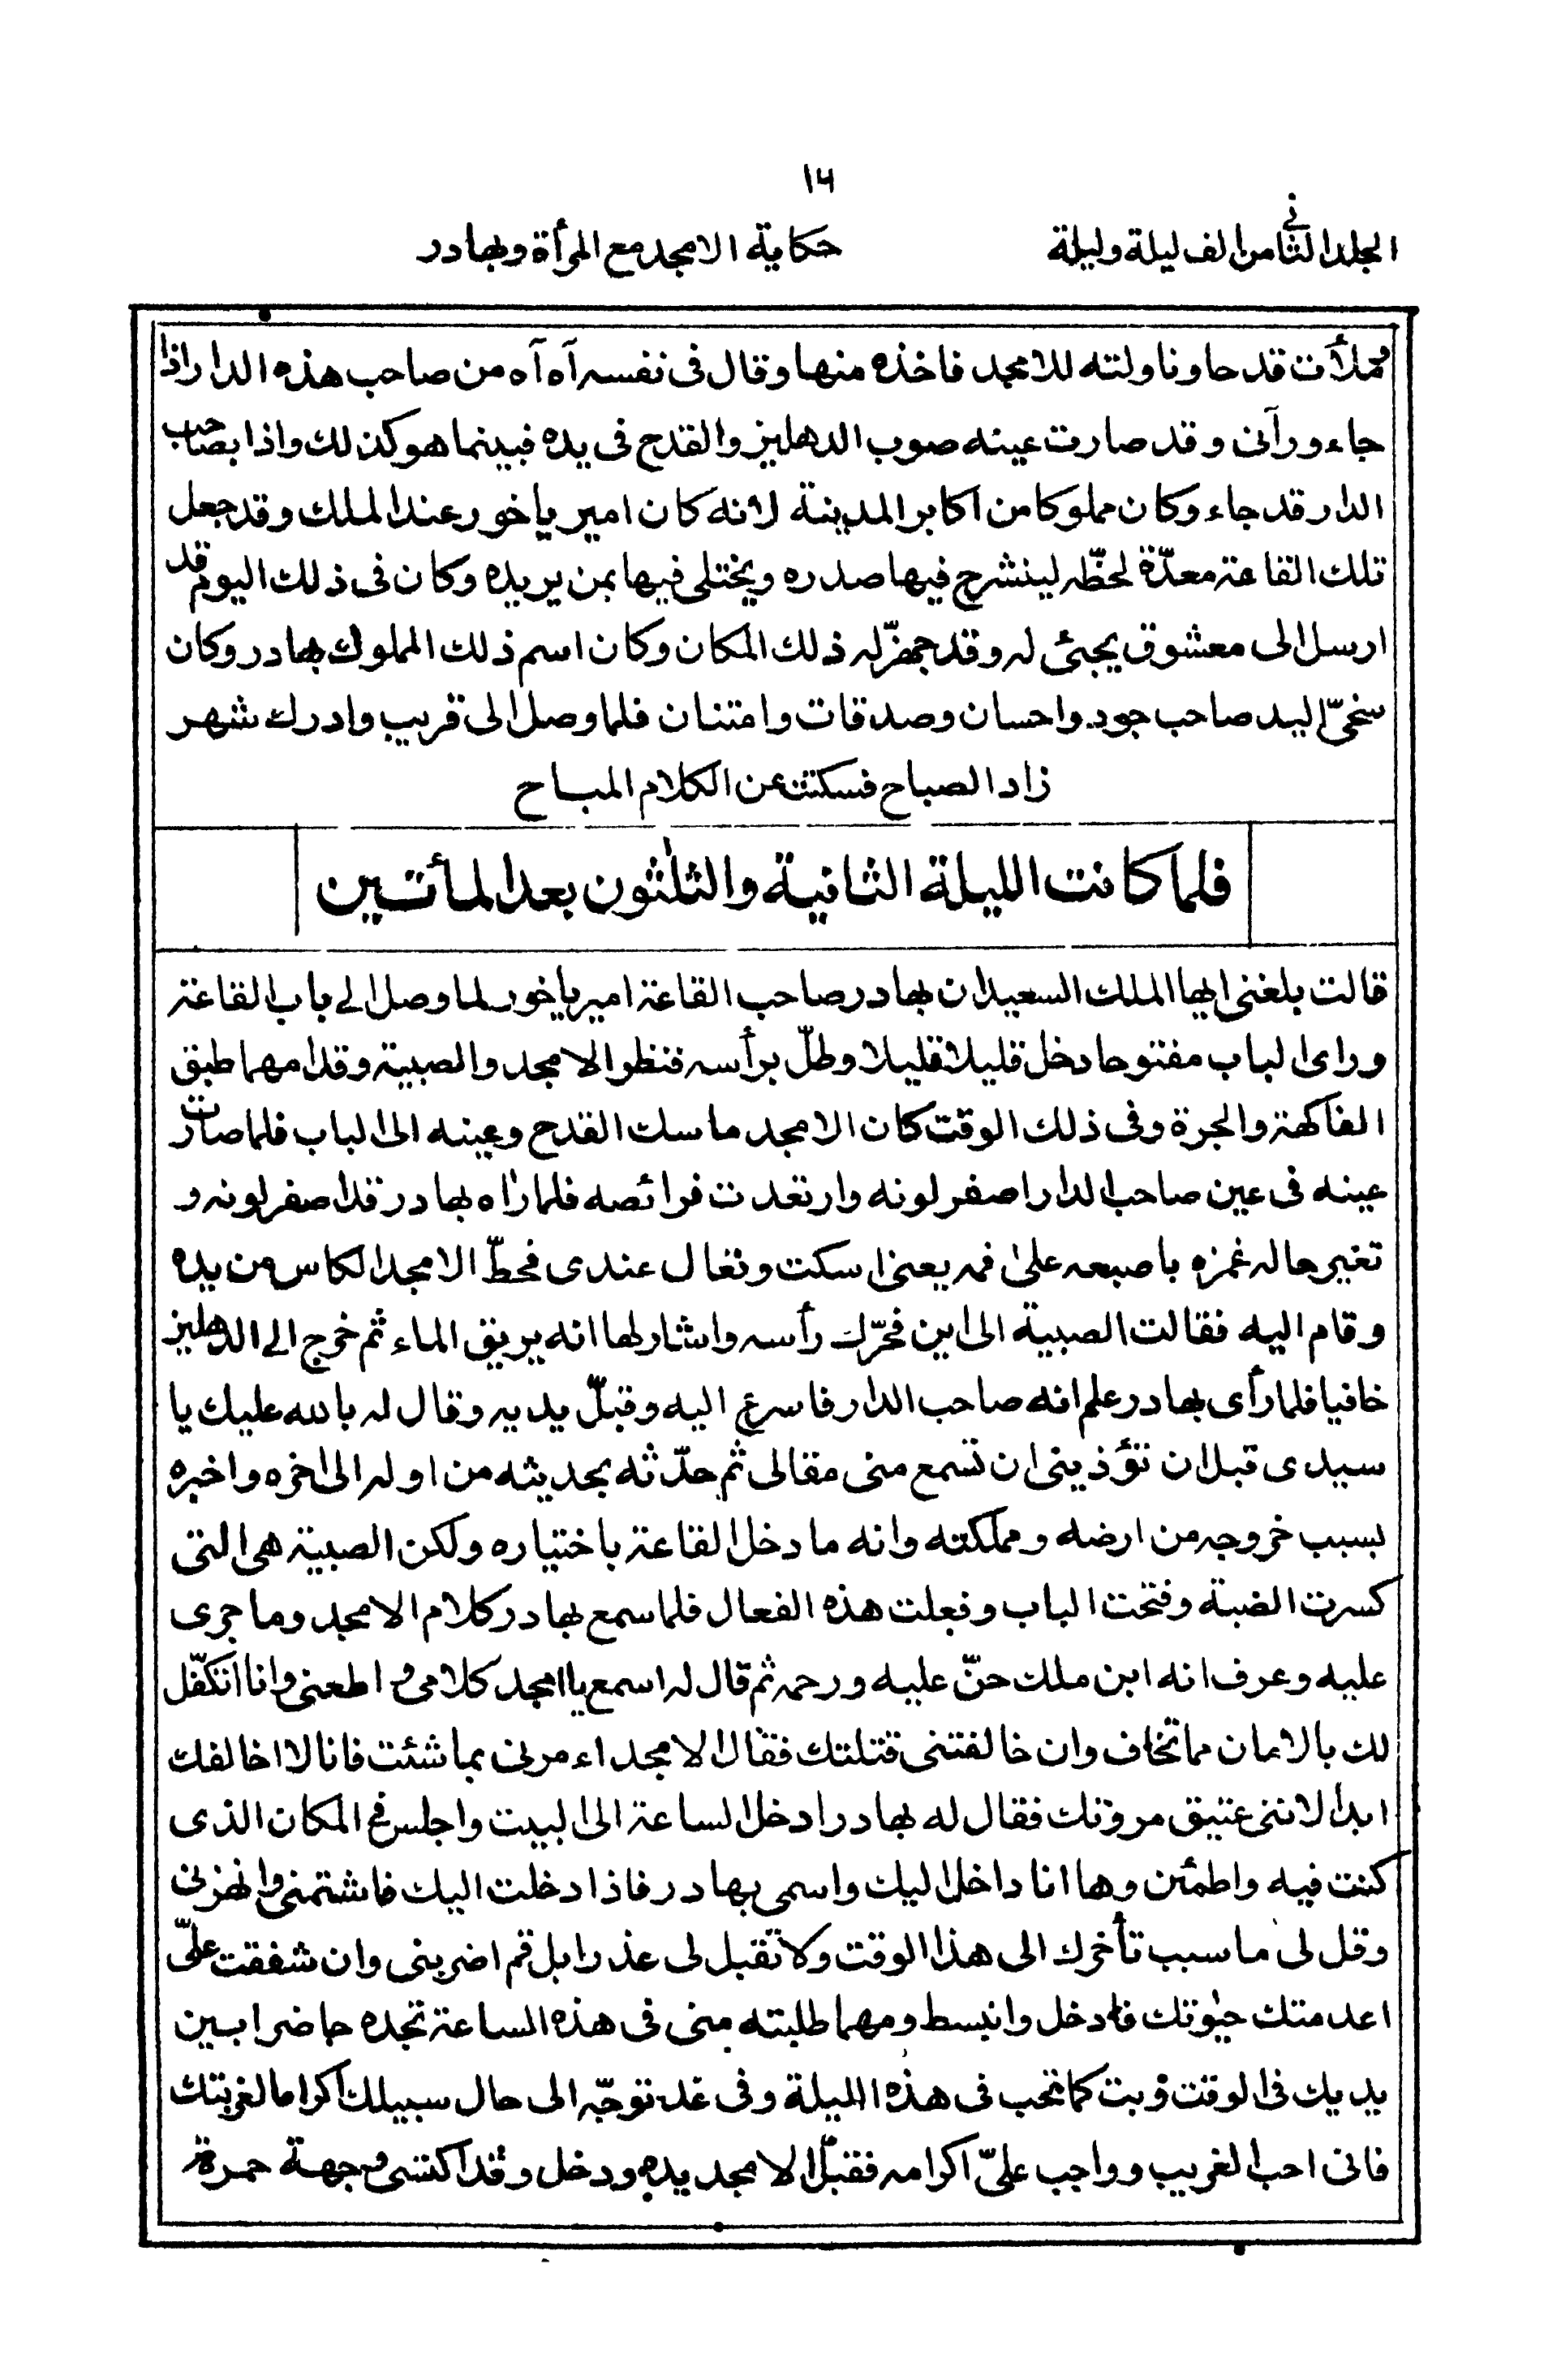 ١٦
الجلد الثاني من الف ليلة وليلة
حكاية الامجد مع المرأة وبهادر
فملأت قدحا وناولته للامجد فاخذه منها وقال فى نفسه آه آه من صاحب هذه الدار اذا
جاء ورآنى وقد صارت عينه صوب الدهليز والقدح فى يده فبينما هو كذلك واذا بصاحب
الدار قد جاء وكان مملوكا من اكابر المدينة لانه كان امير ياخور عند الملك وقد جعل
تلك القاعة معدّة لحظّه لينشرح فيها صدره ويختلى فيها بمن يريده وكان فى ذلك اليوم قد
ارسل الى معشوق يجيئ له وقد جهزّ له ذلك المكان وكان اسم ذلك المملوك بهادر وكان
سخىّ اليد صاحب جود واحسان وصدقات وامتنان فلما وصل الى قريب وادرك شهر
زاد الصباح فسكتت عن الكلام المباح
فلما كانت الليلة الثانية والثلثون بعد المأتين
قالت بلغنى ايها الملك السعيد ان بهادر صاحب القاعة امير ياخور لما وصل الى باب القاعة
وراى الباب مفتوحا دخل قليلا قليلا وطلّ برأسه فنظر الامجد والصبية وقدامهما طبق
الفاكهة والجرة وفى ذلك الوقت كان الامجد ماسك القدح وعينه الى الباب فلما صارت
عينه فى عين صاحب الدار اصفر لونه وارتعدت فرائصه فلما رأه بهادر قد اصفر لونه و
تغير حاله غمزه باصبعه على فمه يعنى اسكت وتعال عندى فحطّ الامجد الكاس من يده
وقام اليه فقالت الصبية الى اين فحرّك رأسه واشار لها انه يريق الماء ثم خرج الى الدهليز
خافيا فلما رأى بهادر علم انه صاحب الدار فاسرع اليه وقبّل يديه وقال له بالله عليك يا
سيدى قبل ان تؤذينى ان تسمع منى مقالى ثم حدّثه بحديثه من اوله الى اخره واخبره
بسبب خروجه من ارضه ومملكته وانه ما دخل القاعة باختياره ولكن الصبية هى التى
كسرت الضبة وفتحت الباب وفعلت هذه الفعال فلما سمع بهادر كلام الامجد وما جرى
عليه وعرف انه ابن ملك حنّ عليه ورحمه ثم قال له اسمع يا امجد كلامى و اطعنى وانا اتكفّل
لك بالامان مما تخاف وان خالفتنى قتلتك فقال الامجد اءمرنى بما شئت فانا لا اخالفك
ابدا لاننى عتيق مروّتك فقال له بهادر ادخل الساعة الى البيت واجلس فى المكان الذى
كنت فيه واطمئن وها انا داخل اليك واسمى بهادر فاذا دخلت اليك فاشتمنى وانهزنى
وقل لى ما سبب تأخرك الى هذا الوقت ولا تقبل لى عذرا بل قم اضربنى وان شفقت علىّ
اعدمتك حيوتك فادخل وانبسط ومهما طلبته منى فى هذه الساعة تجده حاضرا بين
يديك فى الوقت وبت كما تحب فى هذه الليلة وفى غد توجّه الى حال سبيلك اكراما لغربتك
فانى احب الغريب وواجب علىّ اكرامه فقبّل الامجد يده ودخل وقد اكتسى وجهه حمرة